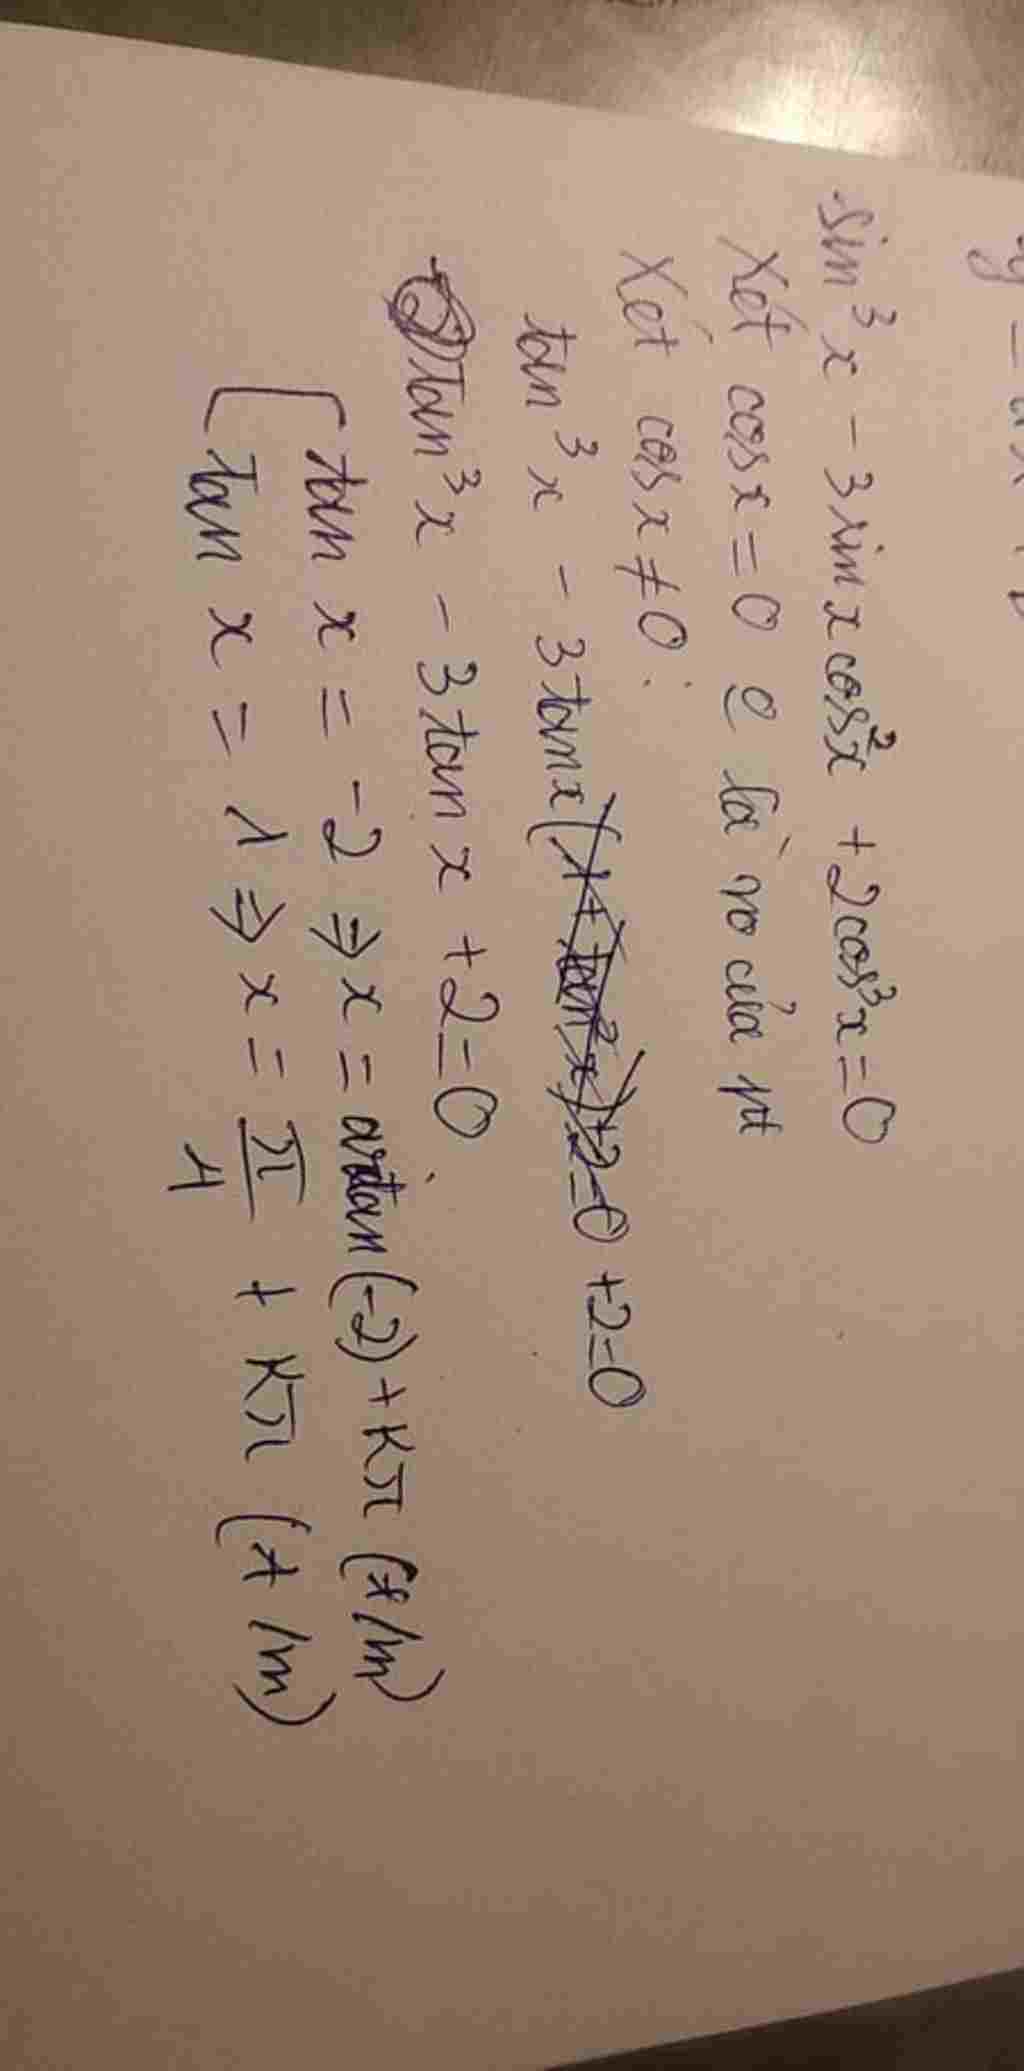 sin³x - 3sinx cos²x + 2cos³x = 0
Xét cosx = 0 ko là no của pt
Xét cosx ≠ 0 :
tan³x - 3tanx (1 + tan²x) + 2 = 0 + 2 = 0
tan³x - 3tanx + 2 = 0
[ tan x = -2 => x = arctan(-2) + kπ (t/m)
tan x = 1 => x = π/4 + kπ (t/m)